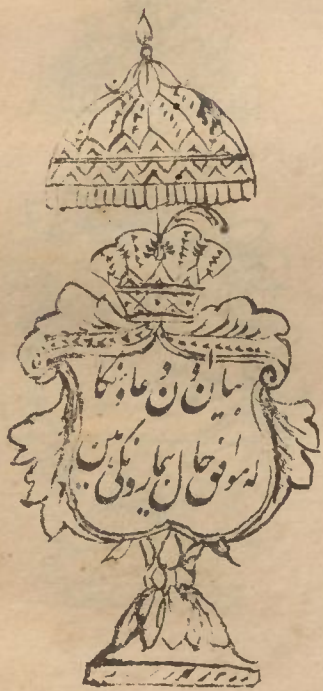 بیان اون دعاونکا
که موافق حال بیمارونکی ہین